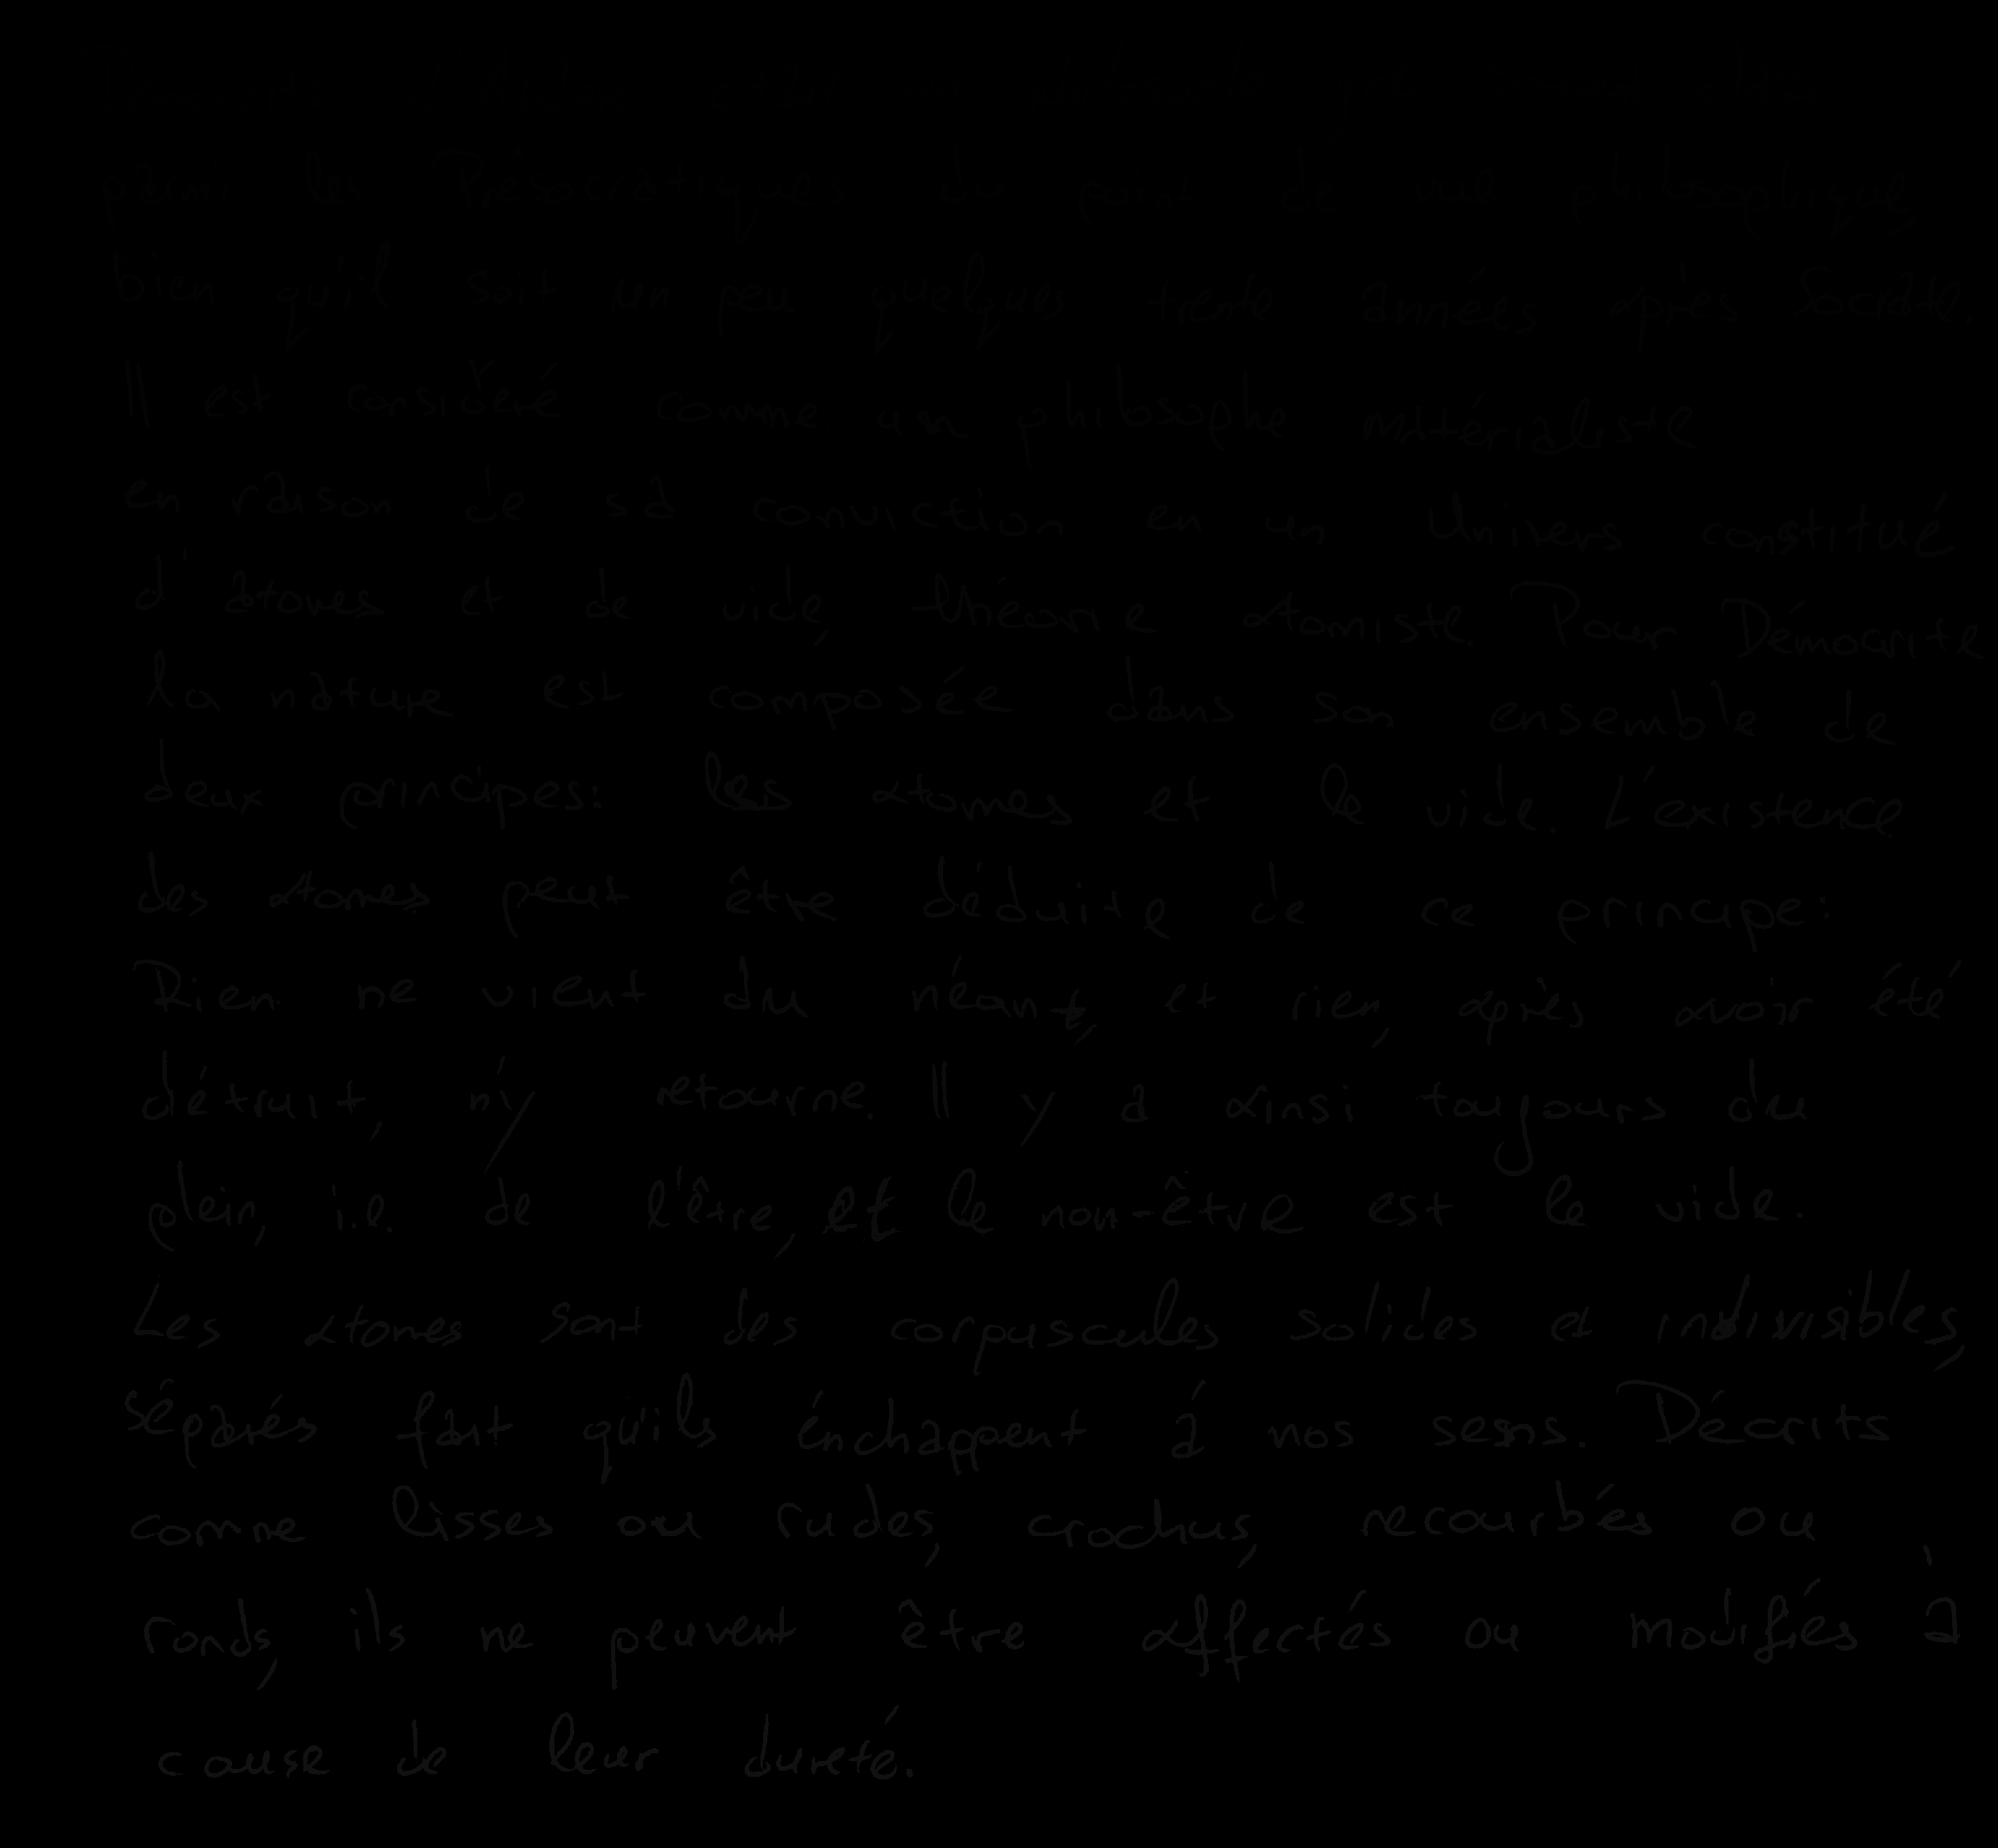 parmi les Présocratiques du point de vue philosophique,
bien qu'il soit un peu quelques trente années après Socrate.
Il est considéré comme un philosophe matérialiste
en raison de sa conviction en un Univers constitué
d'atomes et de vide, théorie atomiste. Pour Démocrite
la nature est composée dans son ensemble de
deux principes: les atomes et le vide. L'existence
des atomes peut être déduite de ce principe:
Rien ne vient du néant, et rien, après avoir été
détruit, n'y retourne. Il y a ainsi toujours du
plein, i.e. de l'être, et le non-être est le vide.
Les atomes sont des corpuscules solides et indivisibles,
séparés fait qu'ils énchappent à nos sens. Décrits
comme lisses ou rudes, crochus, recourbés ou
ronds, ils ne peuvent être affectés ou modifiés à
cause de leur dureté.